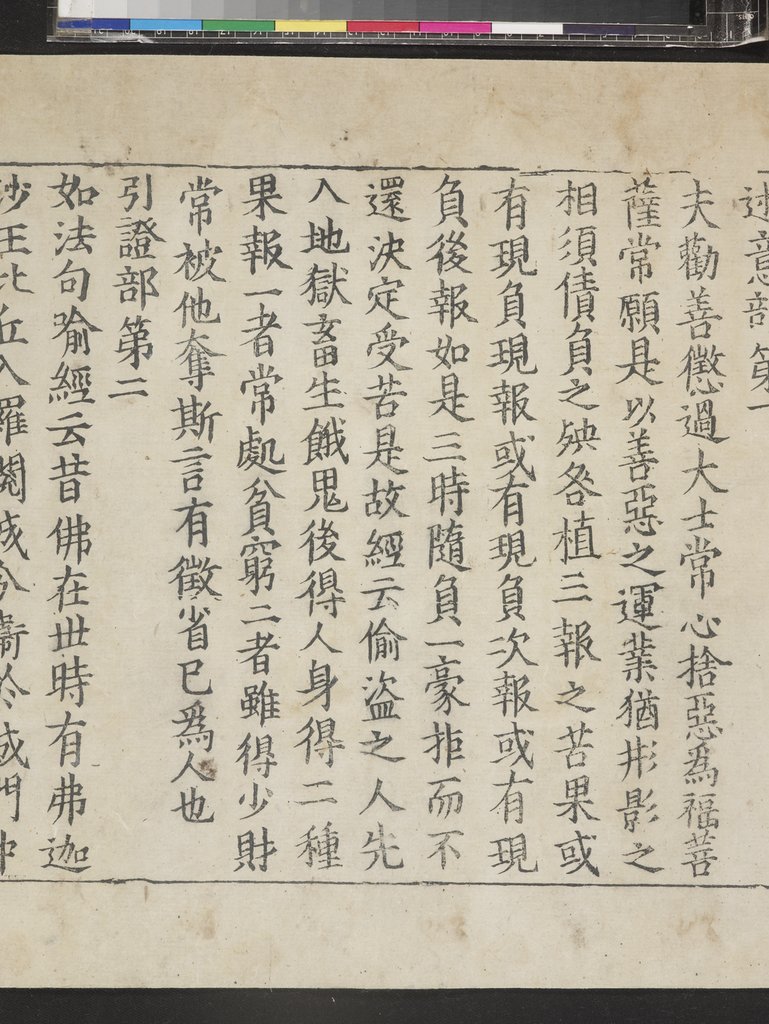 述意部第一
夫勸善懲過大士常心捨惡為福菩
薩常願是以善惡之運業猶形影之
相須債負之殃咎植三報之苦果或
有現負現報或有現負次報或有現
負後報如是三時隨負一豪拒而不
還決定受苦是故經云偷盜之人先
入地獄畜生餓鬼後得人身得二種
果報一者常處貧窮二者雖得少財
常被他奪斯言有徵省已爲人也
引證部第二
如法句喻經云昔佛在世時有弗迦
沙王比丘入羅閱城分衛於城門中